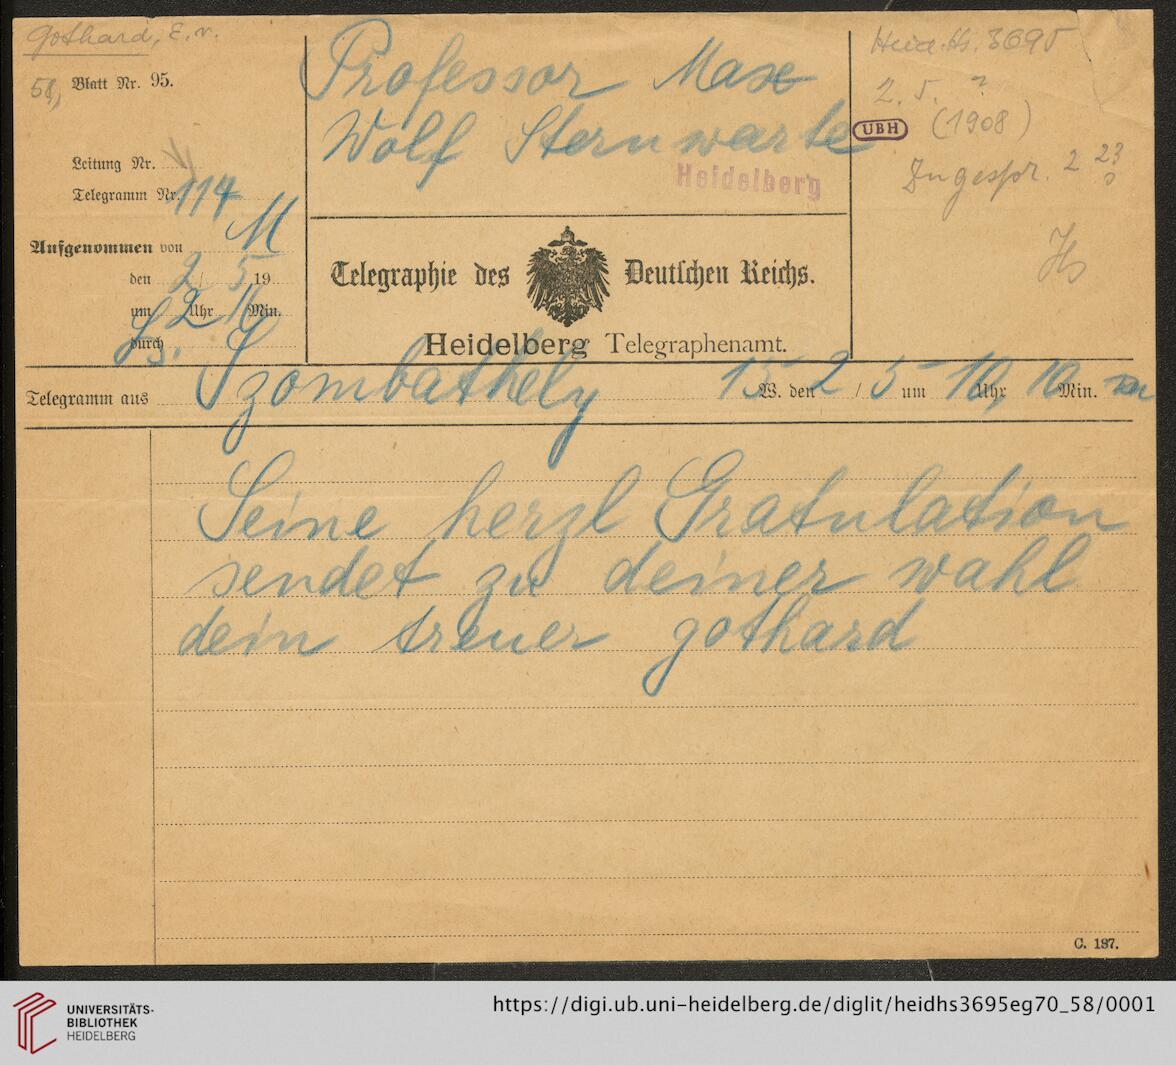 Gothard, E. v.
58,
Blatt Nr. 95.
Leitung Nr.
Telegramm Nr. 114
Aufgenommen von M
den 2 / 5 19
um 2 Uhr Min.
durch
Professor Max
Wolf Sternwarte
Heidelberg
Telegraphie des Deutschen Reichs.
Heidelberg Telegraphenamt.
Heid. Hs. 3695
2. 5. ?
UBH (1908)
Hs
Telegramm aus Szombathely 15 W. den 2 / 5 um 10 Uhr, 10 Min.
Seine herzl Gratulation
sendet zu deiner wahl
dein treuer gothard
C. 187.
UNIVERSITÄTS-
BIBLIOTHEK
HEIDELBERG
https://digi.ub.uni-heidelberg.de/diglit/heidhs3695eg70_58/0001